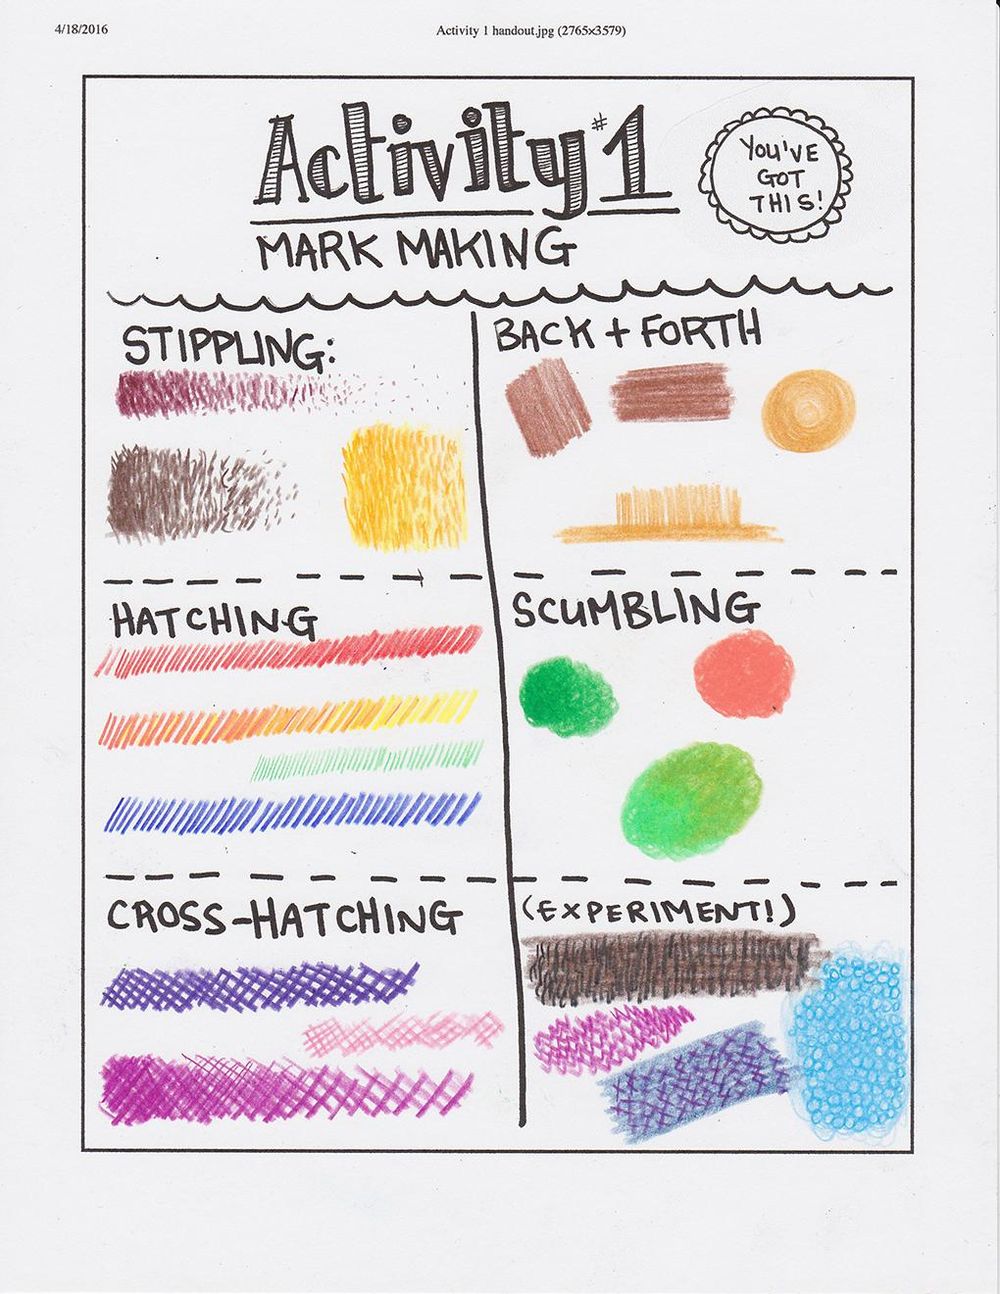 4/18/2016
Activity 1 handout.jpg (2765×3579)
Activity #1
YOU'VE
GOT
THIS!
MARK MAKING
STIPPLING:
BACK + FORTH
HATCHING
SCUMBLING
CROSS-HATCHING
(EXPERIMENT!)